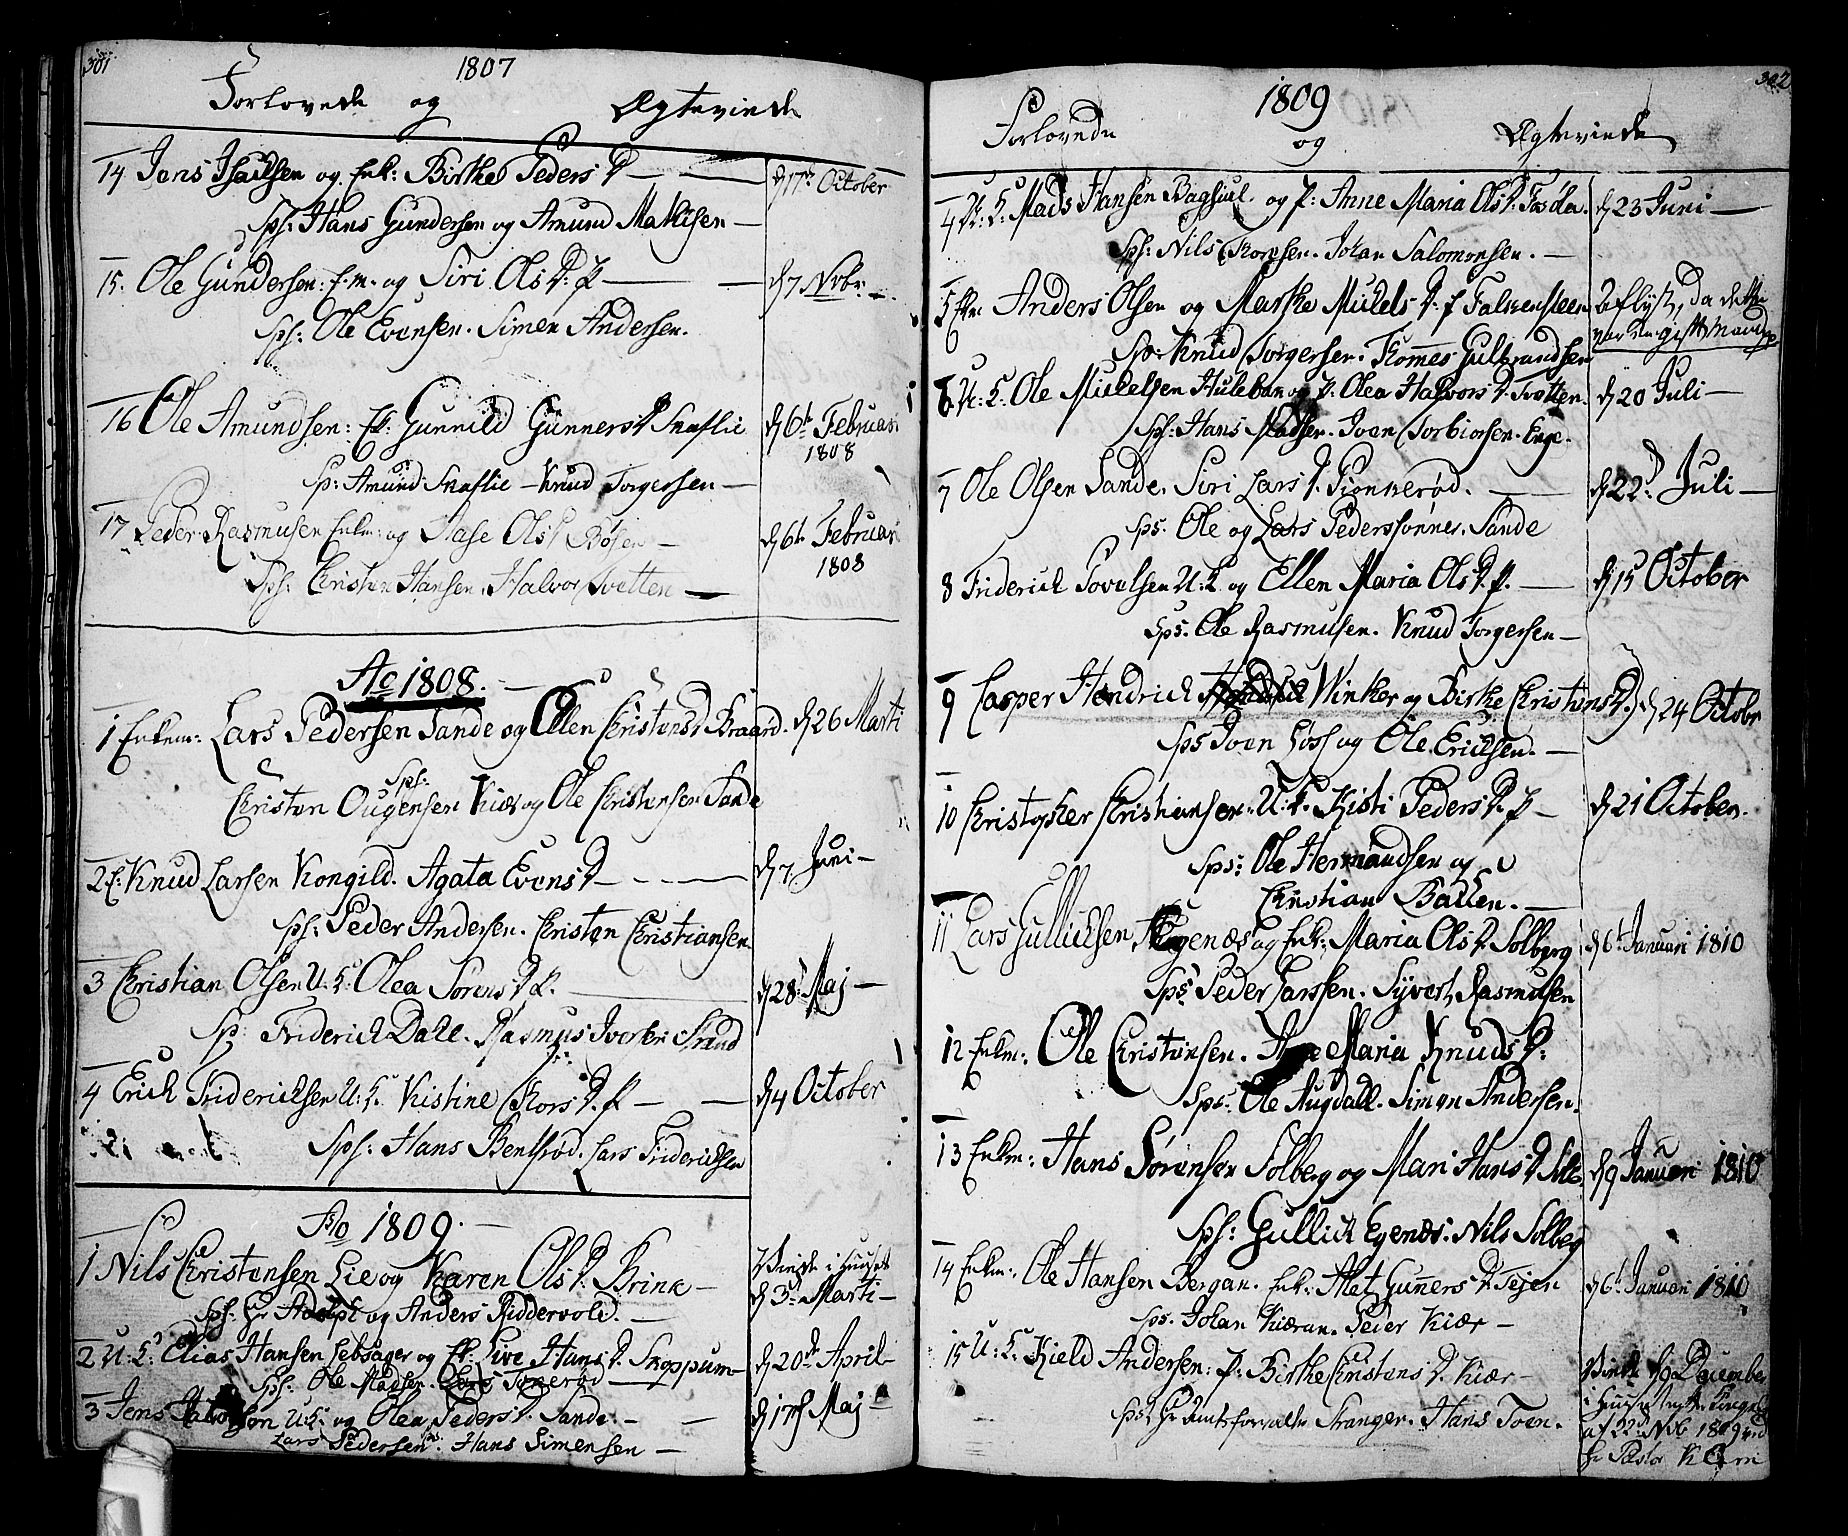 301
1807
Forlovede og Ægteviede
14 Jens Isacksen og Enk: Birthe PedersD — d 17de October
Sps: Hans Gundersen og Amund Mathisen —
15. Ole Gundersen: E.m. og Siri OlsD: P — d 7 Nvbr —
Sps: Ole Evensen. Simen Andersen.
16 Ole Amundsen: Ek: Gunnild GunnersD Snaflie d 6t Februari
1808
Sp: Amund Snaflie — Knud Torgersen —
17 Peder Rasmusen Enkm: og Aase OlsD — d 6t Februari
1808
Sps: Christen Hansen. Halvor Tvetten —
Ao 1808. —
1 Enkem: Lars Pedersen Sande og Ellen ChristensD Braarød. d 26 Marti
Sps:
Christen Ougensen Kiær og Ole Christensen Sande
2 E: Knud Larsen Kongild. Agata EvensD — d 7 Juni —
Sps: Peder Andersen. Christen Christiansen
3 Christian Olsen U.K: Olea SørensD P. d 28: Maj —
Sp: Friderich Dahl. Rasmus Strand
4 Erich Friderichsen U:K. Kistine ThorsD. P — d 4 October
Sps: Hans Bentsrød. Lars Friderichsen
Ao 1809. —
1 Nils Christensen Lie og Karen OlsD. Brink — Viede i Huuset
d 3: Marti —
Sps: Hr Adolph og Anders Riddervold. —
2 U:K: Elias Hansen Lebsager og Ek: Live HansD. Skoppum — d 20de April —
Sps: Ole Madsen. Lars Tønerød —
3 Jens Halvorsen U:K: og Olea PedersD. Sande — d 17de Maj —
Lars Pedersen. Hans Simensen —
302
1809
Forlovede og Ægteviede
4 U:K: Mads Hansen og P: Anne Maria OlsD. d 23 Juni —
Sps: Nils Thoresen. Johan Salomonsen. —
5 Ekm Anders Olsen og Marthe MichelsD. P Falkensteen Aflyst, da dette
var en gift Mand
Sp: Knud Torgersen. Thomes Gulbrandsen
6 U:K: Ole Michelsen Hulebak og P. Olea HalvorsD. Tvetten. d 20 Juli —
Sps: Hans Madsen. Iver Torbiørsen. Enge.
7 Ole Olsen Sande. Siri LarsD. — d 22: Juli —
Sps. Ole og Lars Pederssønner. Sande
8 Friderich Povelsen U:K og Ellen Maria OlsD. P. — d 15 October
Sps. Ole Rasmusen. Knud Torgersen —
9 Casper Hendrich Winker og Birthe ChristensD. d 24 Octobr
Sps Iver Foss og Ole Erichsen. —
10 Christopher Christiansen. U:K. Kisti PedersD. P — d 21 October.
Sps: Ole Hermandsen og
Christian Ballen. —
11 Lars Gullichsen Eegenæs og Enk: Maria OlsD. Solberg d 6t Januari 1810
Sps Peder Larssen. Syvert Rasmusen
12 Enkm: Ole Christensen. Anne Maria KnudsD:
Sps: Ole Augdall. Simen Andersen.
13 Enkm: Hans Sørensen Solberg og Mari HansD d 9 Januari 1810
Sps: Gullick Egenæs. Nils Solberg
14 Enkm: Ole Hansen Bergan. Enk: Alet GunnersD. Tejen d 6t Januari 1810
Sps. Johan Kiæran. Peder Kiær —
15 U:K. Kield Andersen: P: Birthe ChristensD. Kiær — Viede d 9 December
i Huuset efter
af 22d Nvb 1809 ved
Sps: Hr Amtsforvalter Stranger. Hans Toen. Hr Pastor